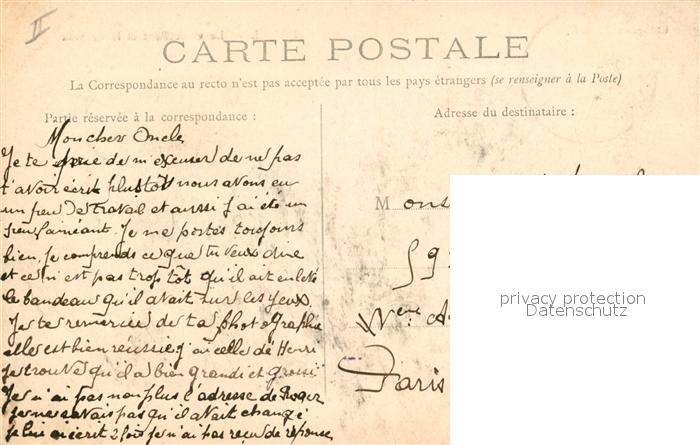 II
CARTE POSTALE
La Correspondance au recto n'est pas acceptée par tous les pays étrangers (se renseigner à la Poste)
Partie réservée à la correspondance :
Adresse du destinataire :
Mon cher Oncle
Je te prie de m'excuser de ne pas
t'avoir écrit plus tôt nous avons eu
un peu de travail et aussi j'ai été un
peu fainéant. Je me portes toujours
bien, je comprends ce que tu veux dire
et ce n'est pas trop tôt qu'il ait enlevé
le bandeau qu'il avait sur les yeux.
Je te remercie de ta photographie
elle est bien reussie j'ai celle de Henri
je trouve qu'il a bien grandi et grossi
Je n'ai pas non plus l'adresse de Roger
je ne savais pas qu'il avait changé
je lui ai écrit 2 fois je n'ai pas reçu de réponse
M ons
59
Paris
privacy protection
Datenschutz